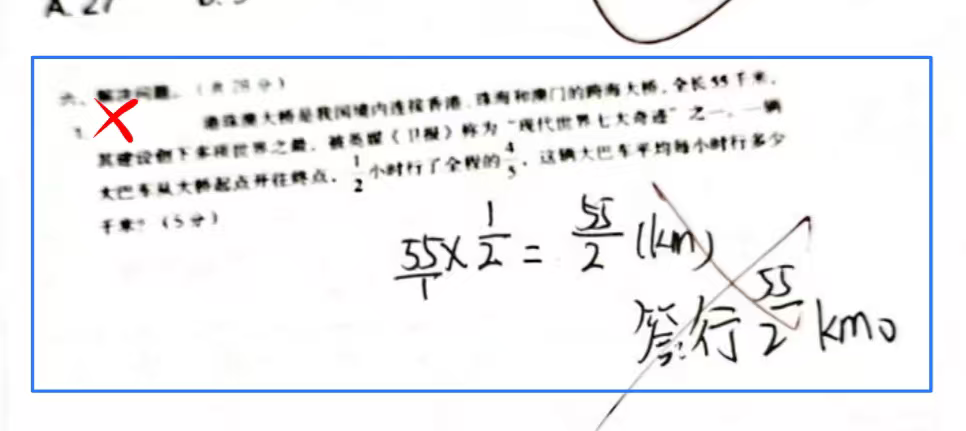 A. 27
六、解决问题。（共 28 分）
1. 港珠澳大桥是我国境内连接香港、珠海和澳门的跨海大桥，全长 55 千米，
其建设创下多项世界之最，被英媒《卫报》称为“现代世界七大奇迹”之一。一辆
大巴车从大桥起点开往终点，1/2 小时行了全程的 4/5，这辆大巴车平均每小时行多少
千米？（5 分）
55/1 × 1/2 = 55/2 (km)
答：行 55/2 km。